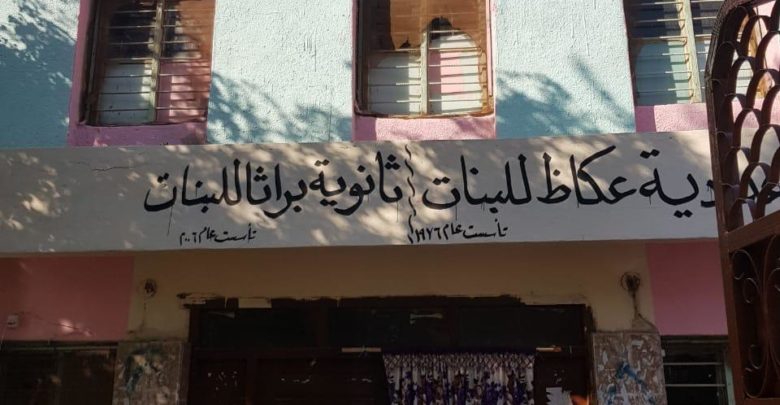 عكاظ للبنات
تأسست عام ١٩٧٦
ثانوية براثا للبنات
تأسست عام ٢٠٠٦